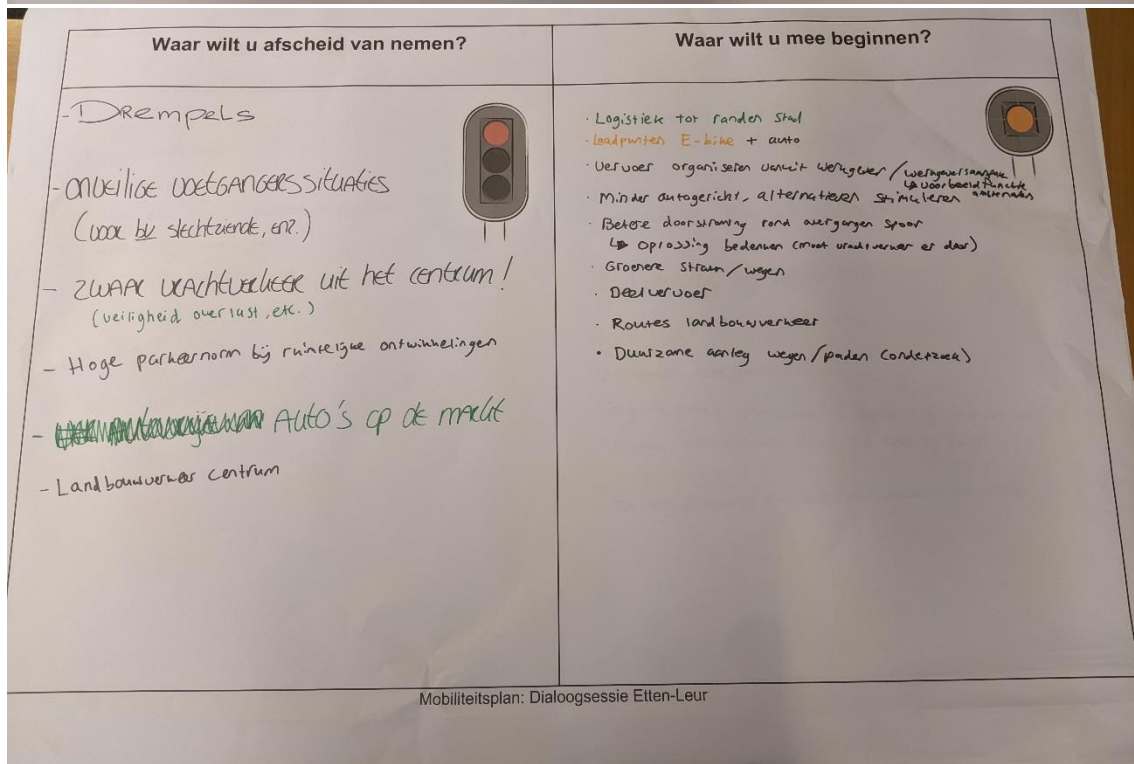 Waar wilt u afscheid van nemen?
- Drempels
- onveilige voetgangerssituaties
(voor bv slechtziende, enz.)
- zwaar vrachtverkeer uit het centrum!
(veiligheid overlast, etc.)
- Hoge parkeernorm bij ruimtelijke ontwikkelingen
- Auto's op de markt
- Landbouwverkeer centrum
Waar wilt u mee beginnen?
· Logistiek tot randen Stad
· Laadpunten E-bike + auto
· Vervoer organiseren vanuit werkgever / werkgeversaanpak
↳ voorbeeldfunctie
· Minder autogericht, alternatieven stimuleren
· Betere doorstroming rond overgangen spoor
↳ oplossing bedenken (moet vrachtverkeer er door)
· Groenere straten/wegen
· Deelvervoer
· Routes landbouwverkeer
· Duurzame aanleg wegen/paden (onderzoek)
Mobiliteitsplan: Dialoogsessie Etten-Leur